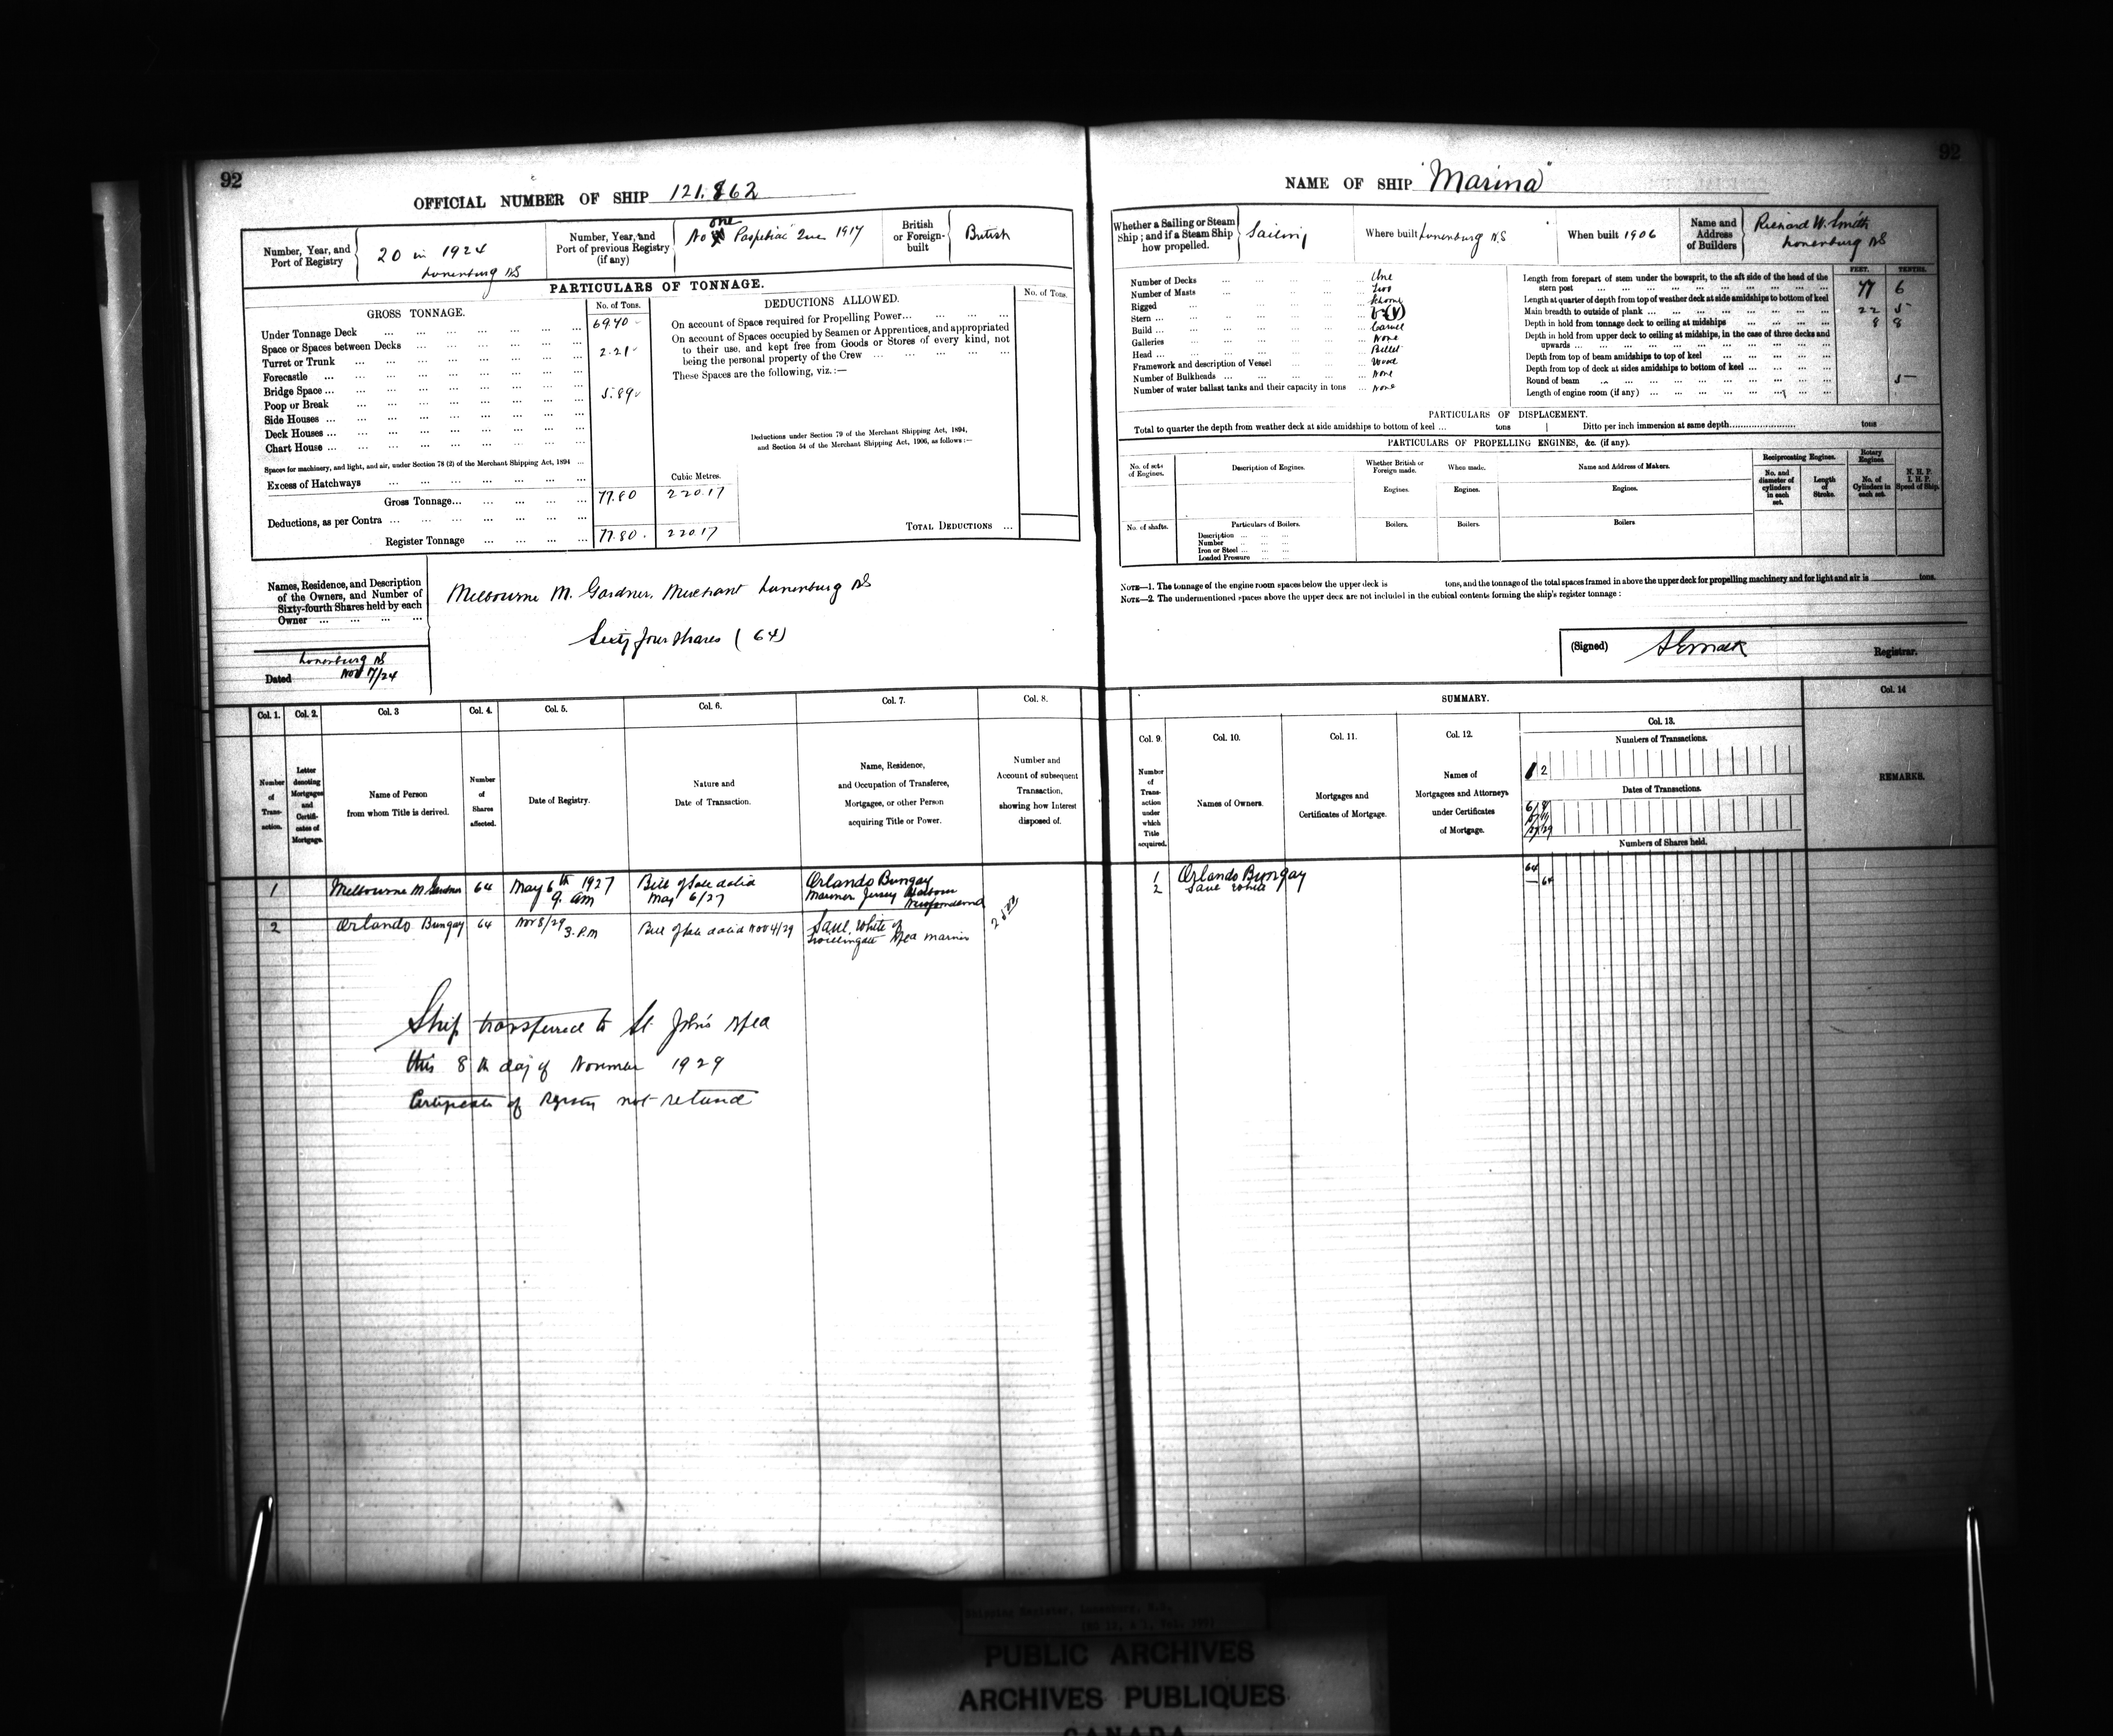 92
OFFICIAL NUMBER OF SHIP 121.862
Number, Year, and Port of Registry
20 in 1924
Lunenburg NS
Number, Year, and Port of previous Registry (if any)
No one Paspebiac Que 1917
British or Foreign-built
British
PARTICULARS OF TONNAGE.
GROSS TONNAGE.
No. of Tons.
Under Tonnage Deck 69.70
Space or Spaces between Decks
Turret or Trunk 2.21
Forecastle
Bridge Space
Poop or Break 5.89
Side Houses
Deck Houses
Chart House
Spaces for machinery, and light, and air, under Section 78 (2) of the Merchant Shipping Act, 1894
Excess of Hatchways
Cubic Metres.
Gross Tonnage 77.80 220.17
Deductions, as per Contra
Register Tonnage 77.80 220.17
DEDUCTIONS ALLOWED.
No. of Tons.
On account of Space required for Propelling Power
On account of Spaces occupied by Seamen or Apprentices, and appropriated
to their use, and kept free from Goods or Stores of every kind, not
being the personal property of the Crew
These Spaces are the following, viz.:—
Deductions under Section 79 of the Merchant Shipping Act, 1894,
and Section 54 of the Merchant Shipping Act, 1906, as follows:—
TOTAL DEDUCTIONS
Names, Residence, and Description
of the Owners, and Number of
Sixty-fourth Shares held by each
Owner
Melbourne M. Gardner, Merchant Lunenburg NS
Sixty four shares (64)
Lunenburg NS
Dated Nov 17/24
Col. 1. Col. 2. Col. 3 Col. 4. Col. 5. Col. 6. Col. 7. Col. 8.
Number of Transaction.
Letter denoting Mortgages and Certificates of Mortgage.
Name of Person from whom Title is derived.
Number of Shares affected.
Date of Registry.
Nature and Date of Transaction.
Name, Residence, and Occupation of Transferee, Mortgagee, or other Person acquiring Title or Power.
Number and Account of subsequent Transaction, showing how Interest disposed of.
1 Melbourne M Gardner 64 May 6th 1927 9. am Bill of Sale dated May 6/27 Orlando Bungay Mariner Jersey Harbour Newfoundland
2 Orlando Bungay 64 Nov 8/29 3. P.M Bill of Sale dated Nov 4/29 Saul White of Twillingate Nfld mariner
Ship transferred to St. John's Nfld
this 8th day of November 1929
Certificate of Registry not returned
92
NAME OF SHIP "Marina"
Whether a Sailing or Steam Ship; and if a Steam Ship how propelled.
Sailing
Where built Lunenburg NS
When built 1906
Name and Address of Builders
Richard W. Smith
Lunenburg NS
Number of Decks One
Number of Masts Two
Rigged
Stern
Build Carvel
Galleries None
Head Billet
Framework and description of Vessel Wood
Number of Bulkheads None
Number of water ballast tanks and their capacity in tons None
FEET. TENTHS.
Length from forepart of stem under the bowsprit, to the aft side of the head of the
stern post 77 6
Length at quarter of depth from top of weather deck at side amidships to bottom of keel
Main breadth to outside of plank 22 5
Depth in hold from tonnage deck to ceiling at midships 8 8
Depth in hold from upper deck to ceiling at midships, in the case of three decks and
upwards
Depth from top of beam amidships to top of keel
Depth from top of deck at sides amidships to bottom of keel
Round of beam 5
Length of engine room (if any)
PARTICULARS OF DISPLACEMENT.
Total to quarter the depth from weather deck at side amidships to bottom of keel ... tons Ditto per inch immersion at same depth tons
PARTICULARS OF PROPELLING ENGINES, &c. (if any).
No. of sets of Engines.
Description of Engines.
Whether British or Foreign made.
When made.
Name and Address of Makers.
Reciprocating Engines.
Rotary Engines
No. and diameter of cylinders in each set.
Length of Stroke.
No. of Cylinders in each set.
N. H. P. I. H. P. Speed of Ship.
Engines. Engines. Engines.
No. of shafts.
Particulars of Boilers.
Boilers. Boilers. Boilers
Description
Number
Iron or Steel
Loaded Pressure
NOTE—1. The tonnage of the engine room spaces below the upper deck is tons, and the tonnage of the total spaces framed in above the upper deck for propelling machinery and for light and air is tons.
NOTE—2. The undermentioned spaces above the upper deck are not included in the cubical contents forming the ship's register tonnage :
(Signed) Registrar.
SUMMARY.
Col. 9. Col. 10. Col. 11. Col. 12. Col. 13. Col. 14
Number of Transaction under which Title acquired.
Names of Owners.
Mortgages and Certificates of Mortgage.
Names of Mortgagees and Attorneys under Certificates of Mortgage.
Numbers of Transactions.
1 2
Dates of Transactions.
Numbers of Shares held.
REMARKS.
1 Orlando Bungay 64
2 Saul White — 64
Shipping Register, Lunenburg, N.S.
PUBLIC ARCHIVES
ARCHIVES PUBLIQUES
CANADA